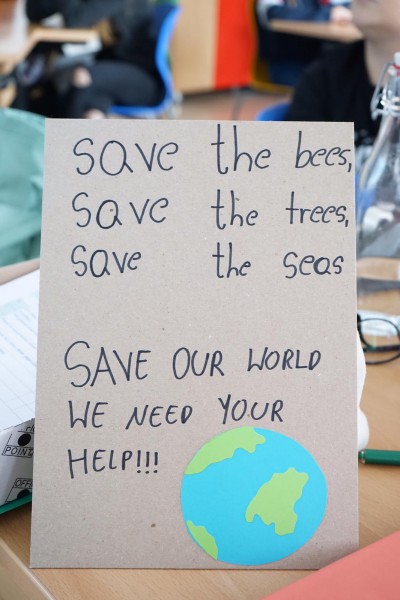 save the bees,
save the trees,
save the seas
SAVE OUR WORLD
WE NEED YOUR
HELP!!!
POINT